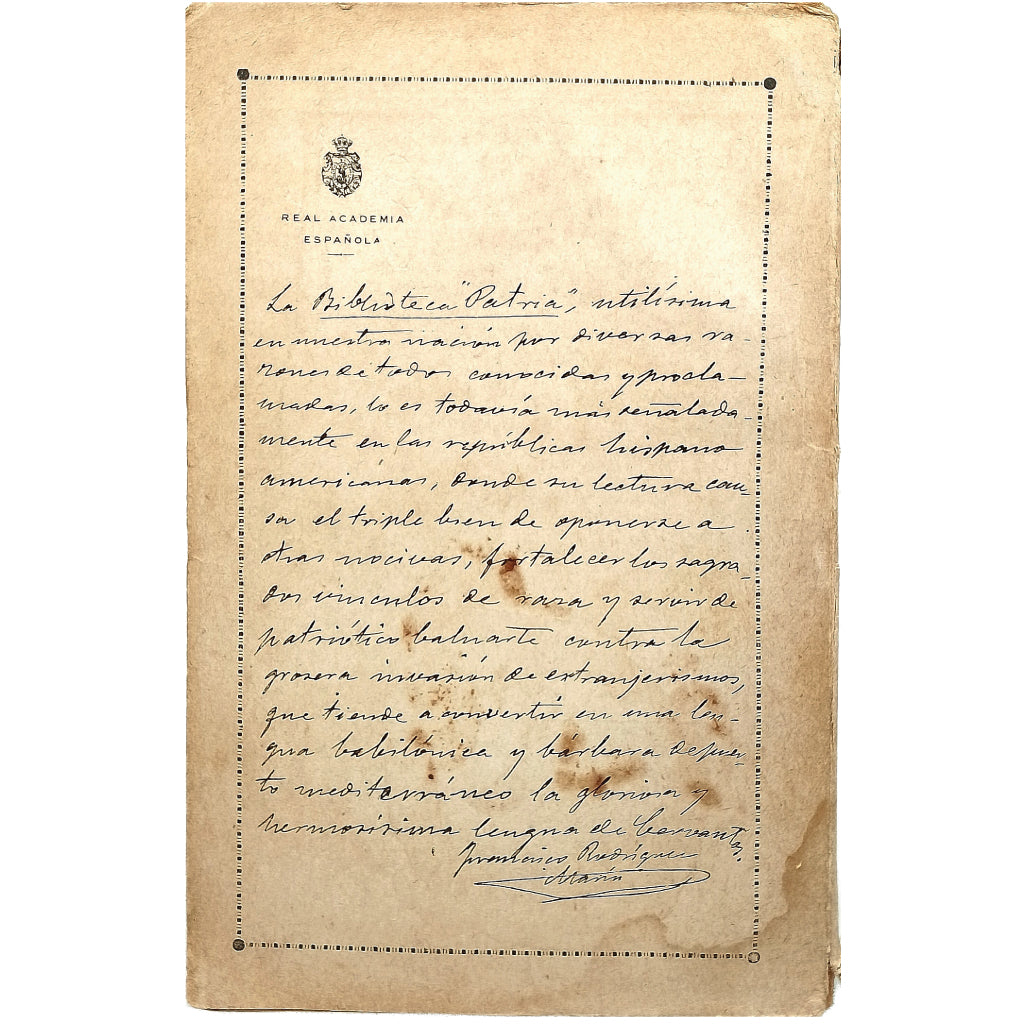 REAL ACADEMIA
ESPAÑOLA
La Biblioteca "Patria", utilísima
en nuestra nación por diversas ra-
zones de todos conocidas y procla-
madas, lo es todavía más señalada-
mente en las repúblicas hispano
americanas, donde su lectura cau-
sa el triple bien de oponerse a
otras nocivas, fortalecer los sagra-
dos vínculos de raza y servir de
patriótico baluarte contra la
grosera invasión de extranjerismos,
que tiende a convertir en una len-
gua babilónica y bárbara de puer-
to mediterráneo la gloriosa y
hermosísima lengua de Cervantes.
Francisco Rodríguez
Marín